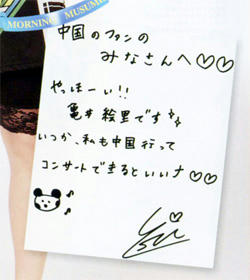 MORNING MUSUM
中国のファンの
みなさんへ♡♡
やっほーい!!
亀井絵里です
いつか、私も中国行って
コンサートできるといいナ♡♡